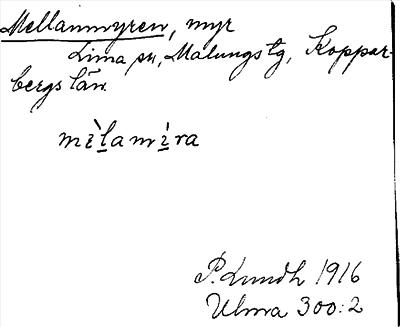 Mellanmyren, myr
Lima sn, Malungs tg, Koppar-
bergs län
mèlamìra
P. Lundh 1916
Ulma 300:2